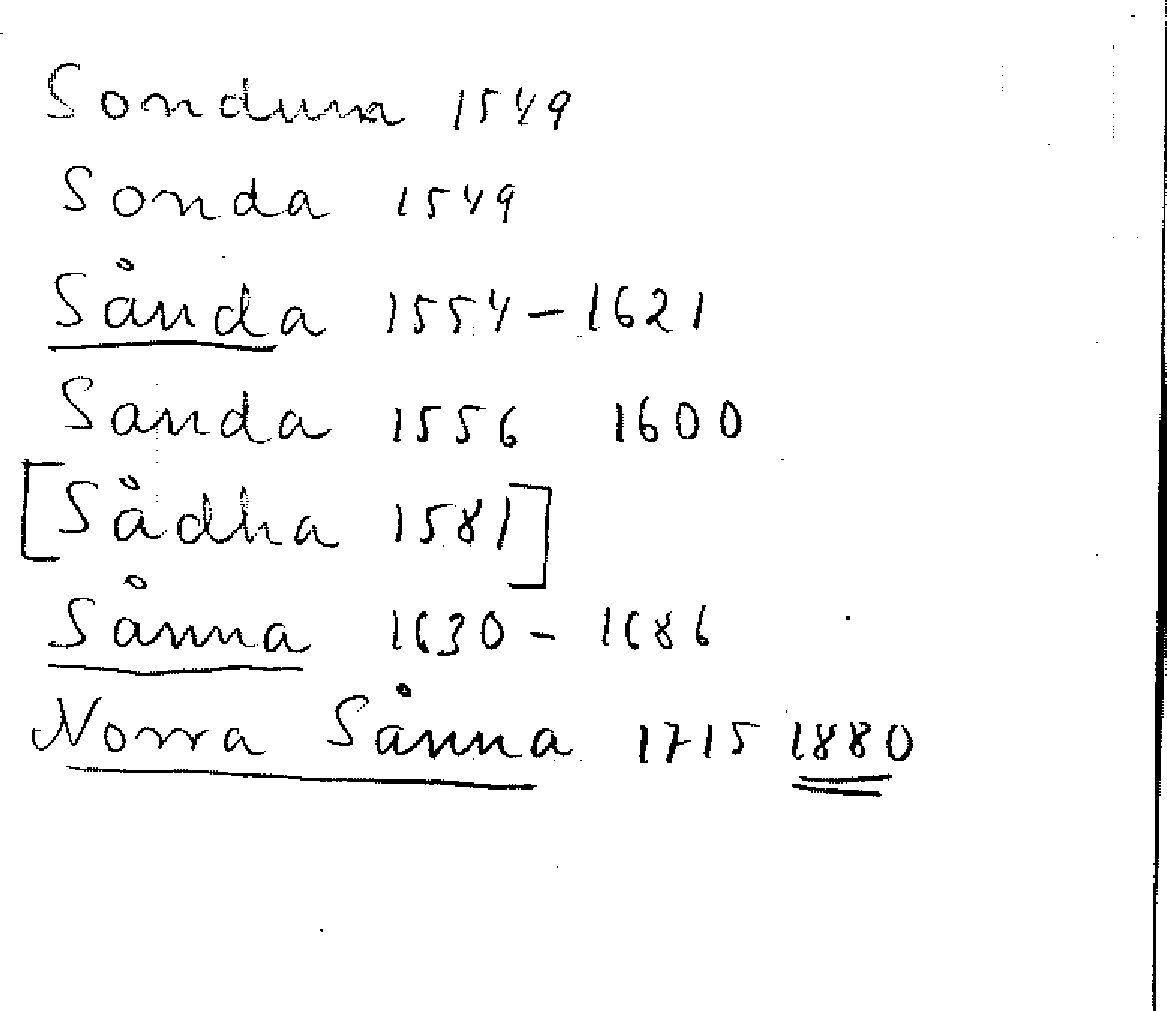 Sonduna 1549
Sonda 1549
Sånda 1554-1621
Sanda 1556 1600
[Sådha 1581]
Sånna 1630- 1686
Norra Sånna 1715 1880